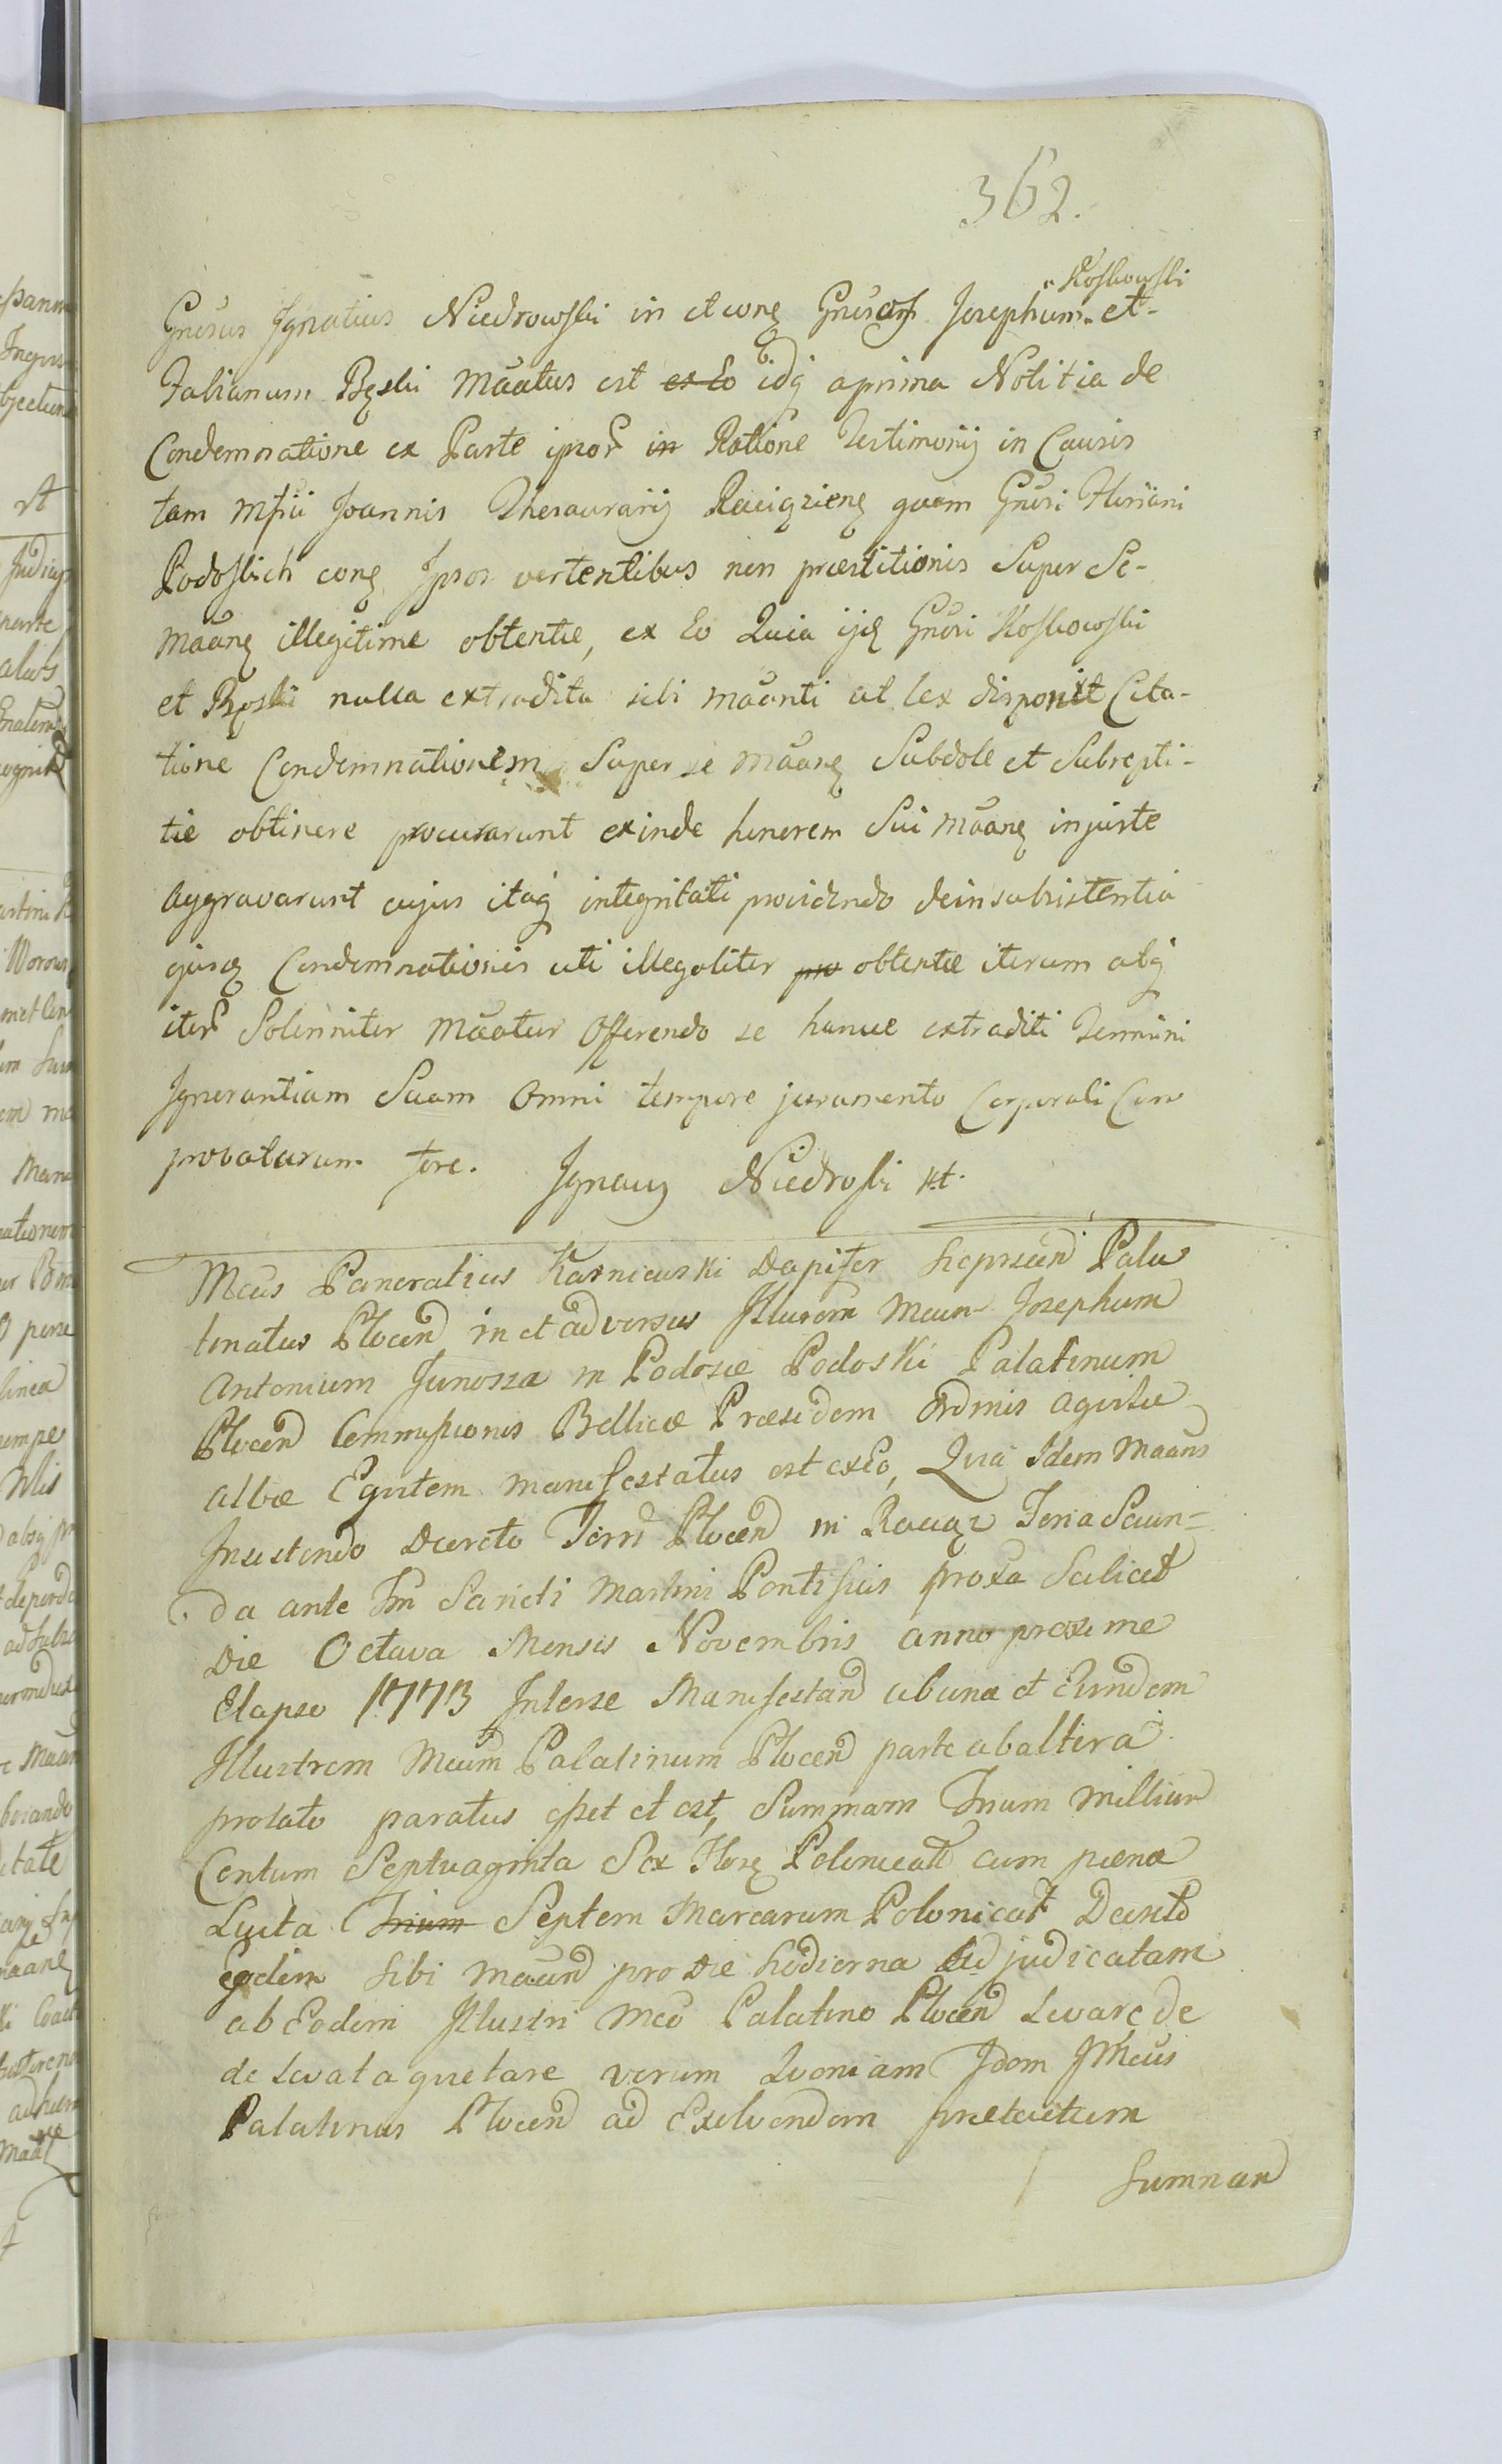 362.
Gnrsus Ignatius Niedrowski in et cong Gnrsos Josephum " Koskowski et
Fabianum Bęski Mãatus est ex Eo idq aprima Notitia de
Condemnatione ex Parte ipsor in Ratione Testimonij in Causis
tam Mfci Joannis Thesaurarij Raciązieng quam Gnrsi Floriani
Podoskich cong Ipsos vertentibus non præstitionis Super Se
Mãang illegitime obtentæ, ex Eo Quia ijd Gnrsi Koskowski
et Bęski nulla extradita sibi Mãanti ut lex disponit Cita-
tione Condemnationem Super se Mãang Subdole et Subrepti-
tie obtinere procurarunt exinde honorem Sui Mãang injuste
Aggravarunt cujus itaq integritati providendo deinsubsistentia
ejusd Condemnationis uti illegaliter pro obtentæ iterum atq
iter Solenniter Mãatur Offerendo se hancce extraditi Termini
Ignorantiam Suam Omni tempore juramento Corporali Com
probaturum fore. Ignacy Niedroski mt.
Mcus Pancratius Karnicuski Dapifer Sieprscen Pala
tinatus Plocen in et adversus Illurem Mcum Josephum
Antonium Junosza in Podosie Podoski Palatinum
Plocen Commissionis Bellicæ Præsidem Ordinis Aquilæ
Albæ Equitem manifestatus est exEo, Quia Idem Maans
Insistendo Decreto Terri Plocen in Raciąz Feria Secun=
da ante Fm Sancti Martini Pontificis proxa Scilicet
Die Octava Mensis Novembris anno proxime
Elapso 1773 Interse Manifestan ab una et Eundem
Illustrem Mcum Palatinum Plocen parte ab altera
prolato paratus esset et est, Summam Trium Millium
Centum Septuaginta Sex Flors Polonicat cum pæna
Luita Trium Septem Marcarum Polonicat Decreto
Eodem Sibi Maan pro Die hodierna adjudicatam
ab Eodem Illustri Mco Palatino Plocen Levare de
de Levata quietare verum Quoniam Idem IMcus
Palatinus Plocen ad Exolvendam prætactam
Summam